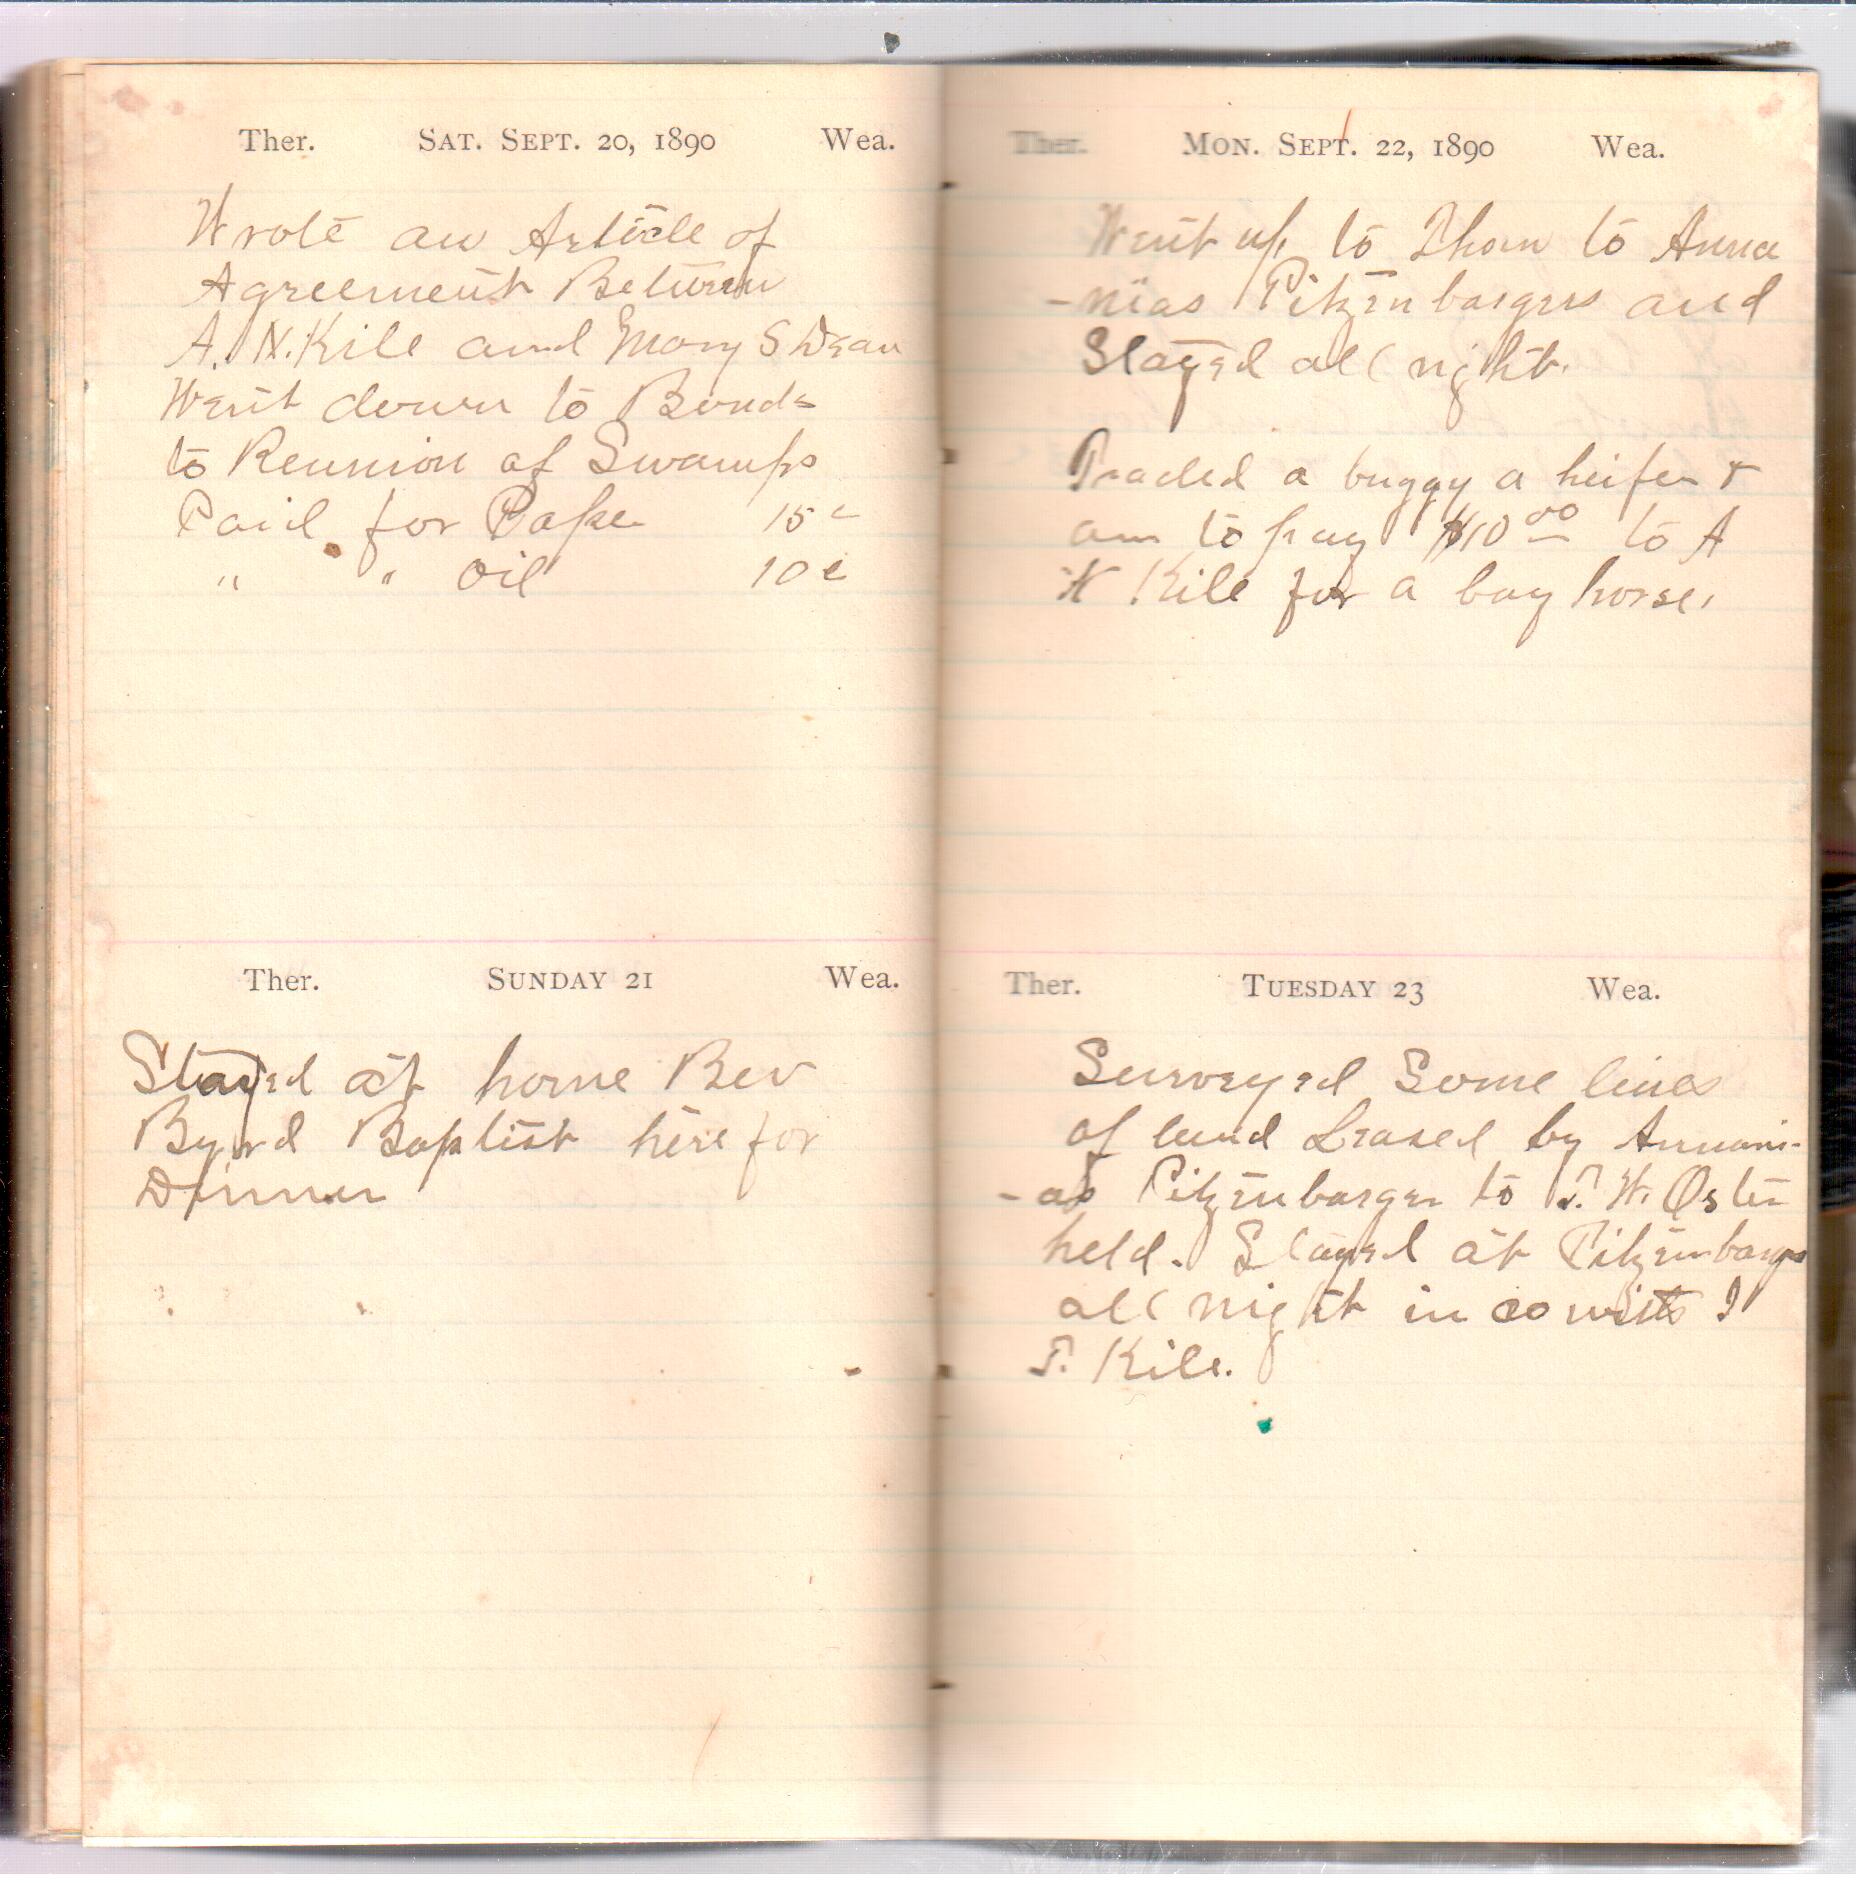 Ther. SAT. SEPT. 20, 1890 Wea.
Wrote an Article of
Agreement Between
A. N. Kile and Mary S Dean
Went down to Bonds
to Reunion of Swamps
Paid for Paper 15c
" " Oil 10c
Ther. SUNDAY 21 Wea.
Stayed at home Rev
Byrd Baptist here for
Dinner
Ther. MON. SEPT. 22, 1890 Wea.
Went up to Thorn to Anna
-nias Pitzenbargers and
Stayed all night.
Traded a buggy a heifer &
am to pay $10 00 to A
N Kile for a bay horse.
Ther. TUESDAY 23 Wea.
Surveyed Some lines
of land Leased by Annani-
-as Pitzenbarger to T. W. Oster
held. Stayed at Pitzenbargs
all night in co with I
T. Kile.